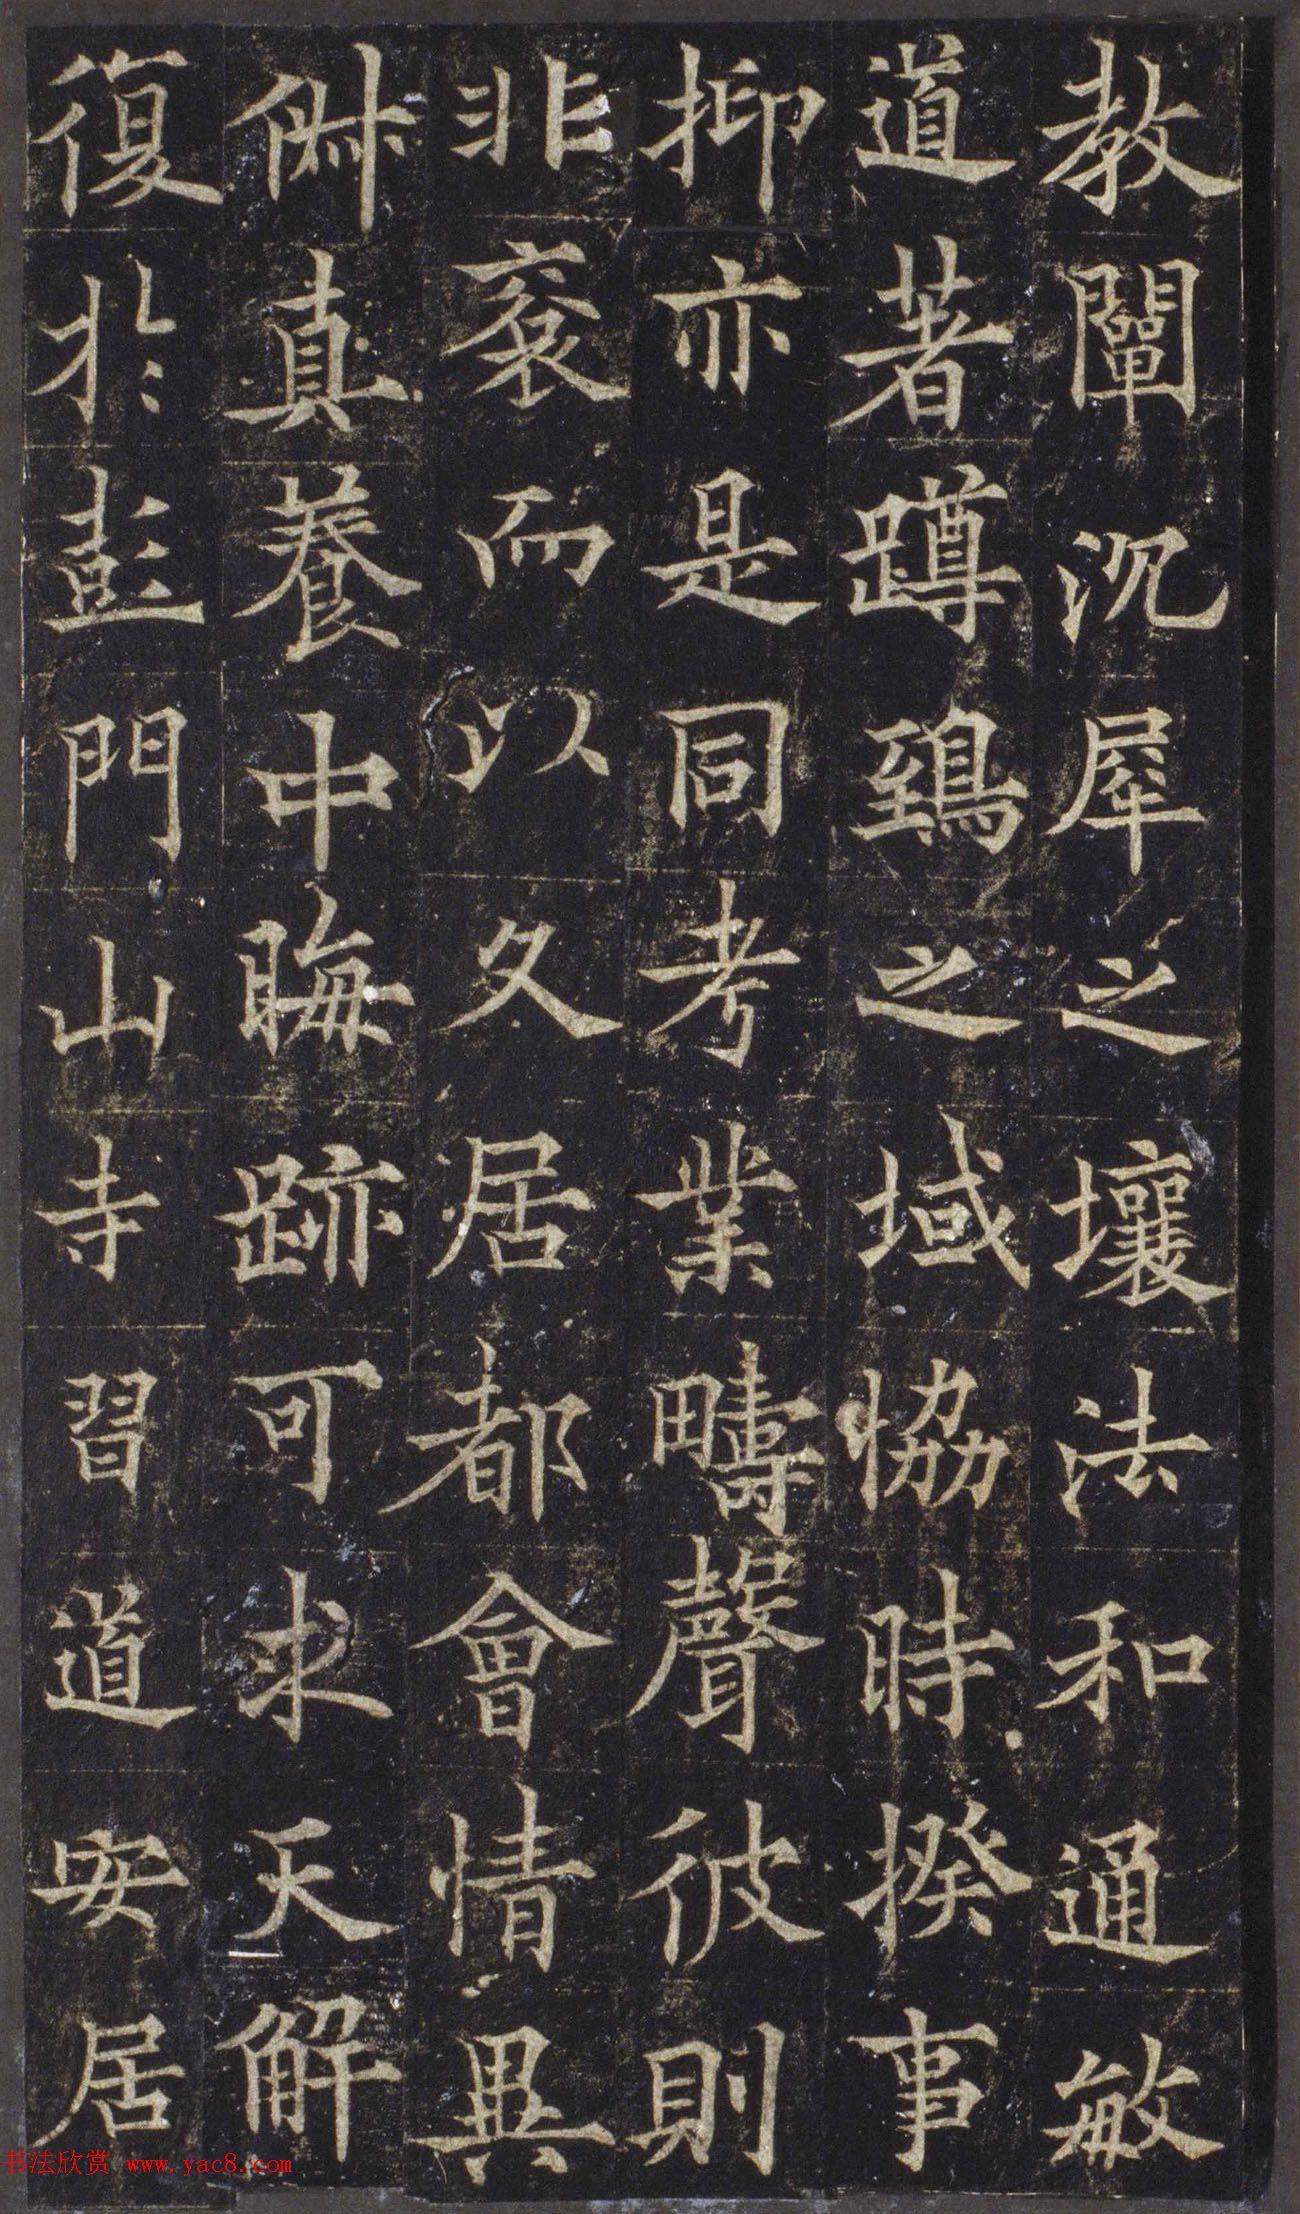 教闡沉犀之壤法和通敏
道著蹲鵄之域協時揆事
抑亦是同考業疇聲彼則
非衮而以久居都會情異
俯真養中晦跡可求天解
復於彭門山寺習道安居
书法欣赏 www.yac8.com